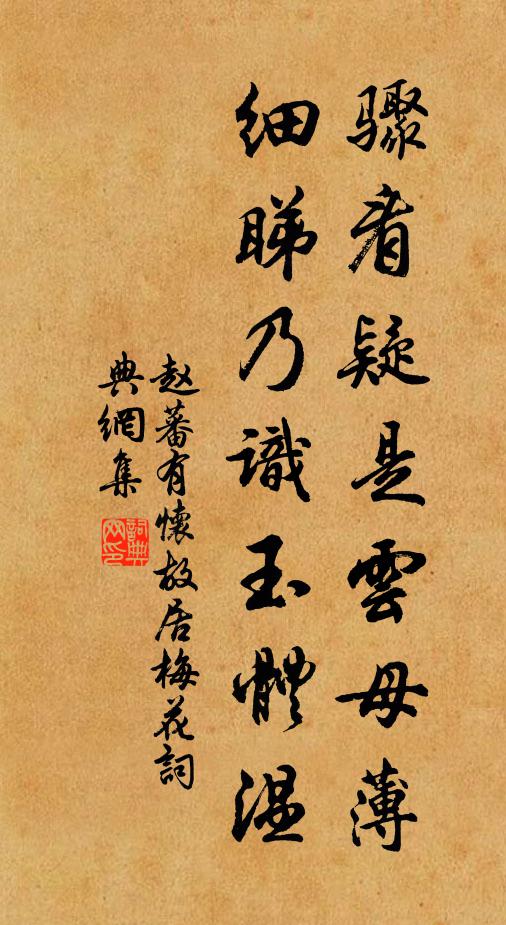 驟看疑是雲母薄
細睇乃識玉體温
赵蕃有懷故居梅花詞
典網集
詞典网印